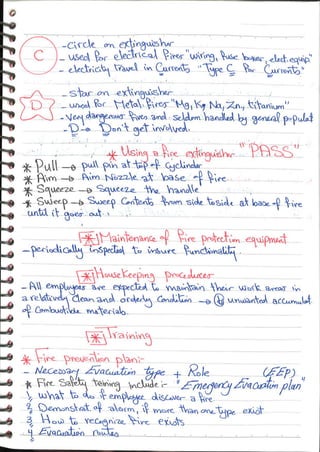 C
- Circle on extinguisher
- used for electrical fires "wiring, fuse boxes, elect. equip"
- electricity travel in Currents "Type C For Currents"
D
- Star on extinguisher
- used for Metal fires "Mg, K, Na, Zn, titanium"
- Very dangerous fires and seldom handled by general populat
- D → Don't get involved.
* Using a fire extinguisher "PASS"
* Pull → pull pin at top of cyclinder
* Aim → Aim Nozzle at base of fire
* Squeeze → Squeeze the handle
* Sweep → Sweep Contents from side to side at base of fire
until it goes out.
* Maintenance of fire protection equipment
- periodically inspected to insure functionality.
* House Keeping procedures
- All employees are expected to maintain their work area in
a relatively clean and orderly Condition → unwanted accumulat
of Combustible materials.
* Training
* Fire prevention plan:-
- Necessary Evacuation type + Role (EEP)
* Fire Safety training include:- "Emergency Evacuation plan"
1, What to do if employee discover a fire
2, Demonstrat. of alarm, if more than one type exist
3, How to recognize fire exists
4, Evacuation routes